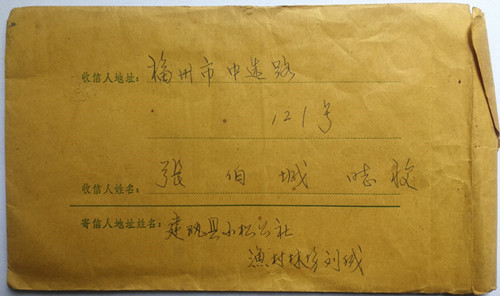 收信人地址：福州市中选路
121号
收信人姓名：张伯城 收
寄信人地址姓名：建瓯县小松公社
渔村林场刘